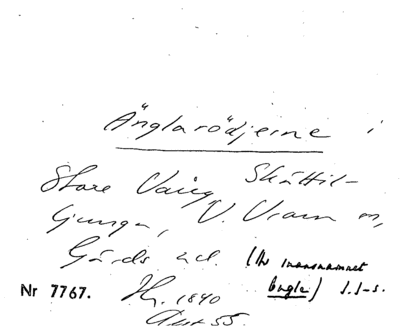 Änglarödjerne i
Store Vång Skättil-
ljunga, V. Vram sn,
Gärds hd. (Av mansnamnet
Engle) S.I-s.
Nr 7767. 1840